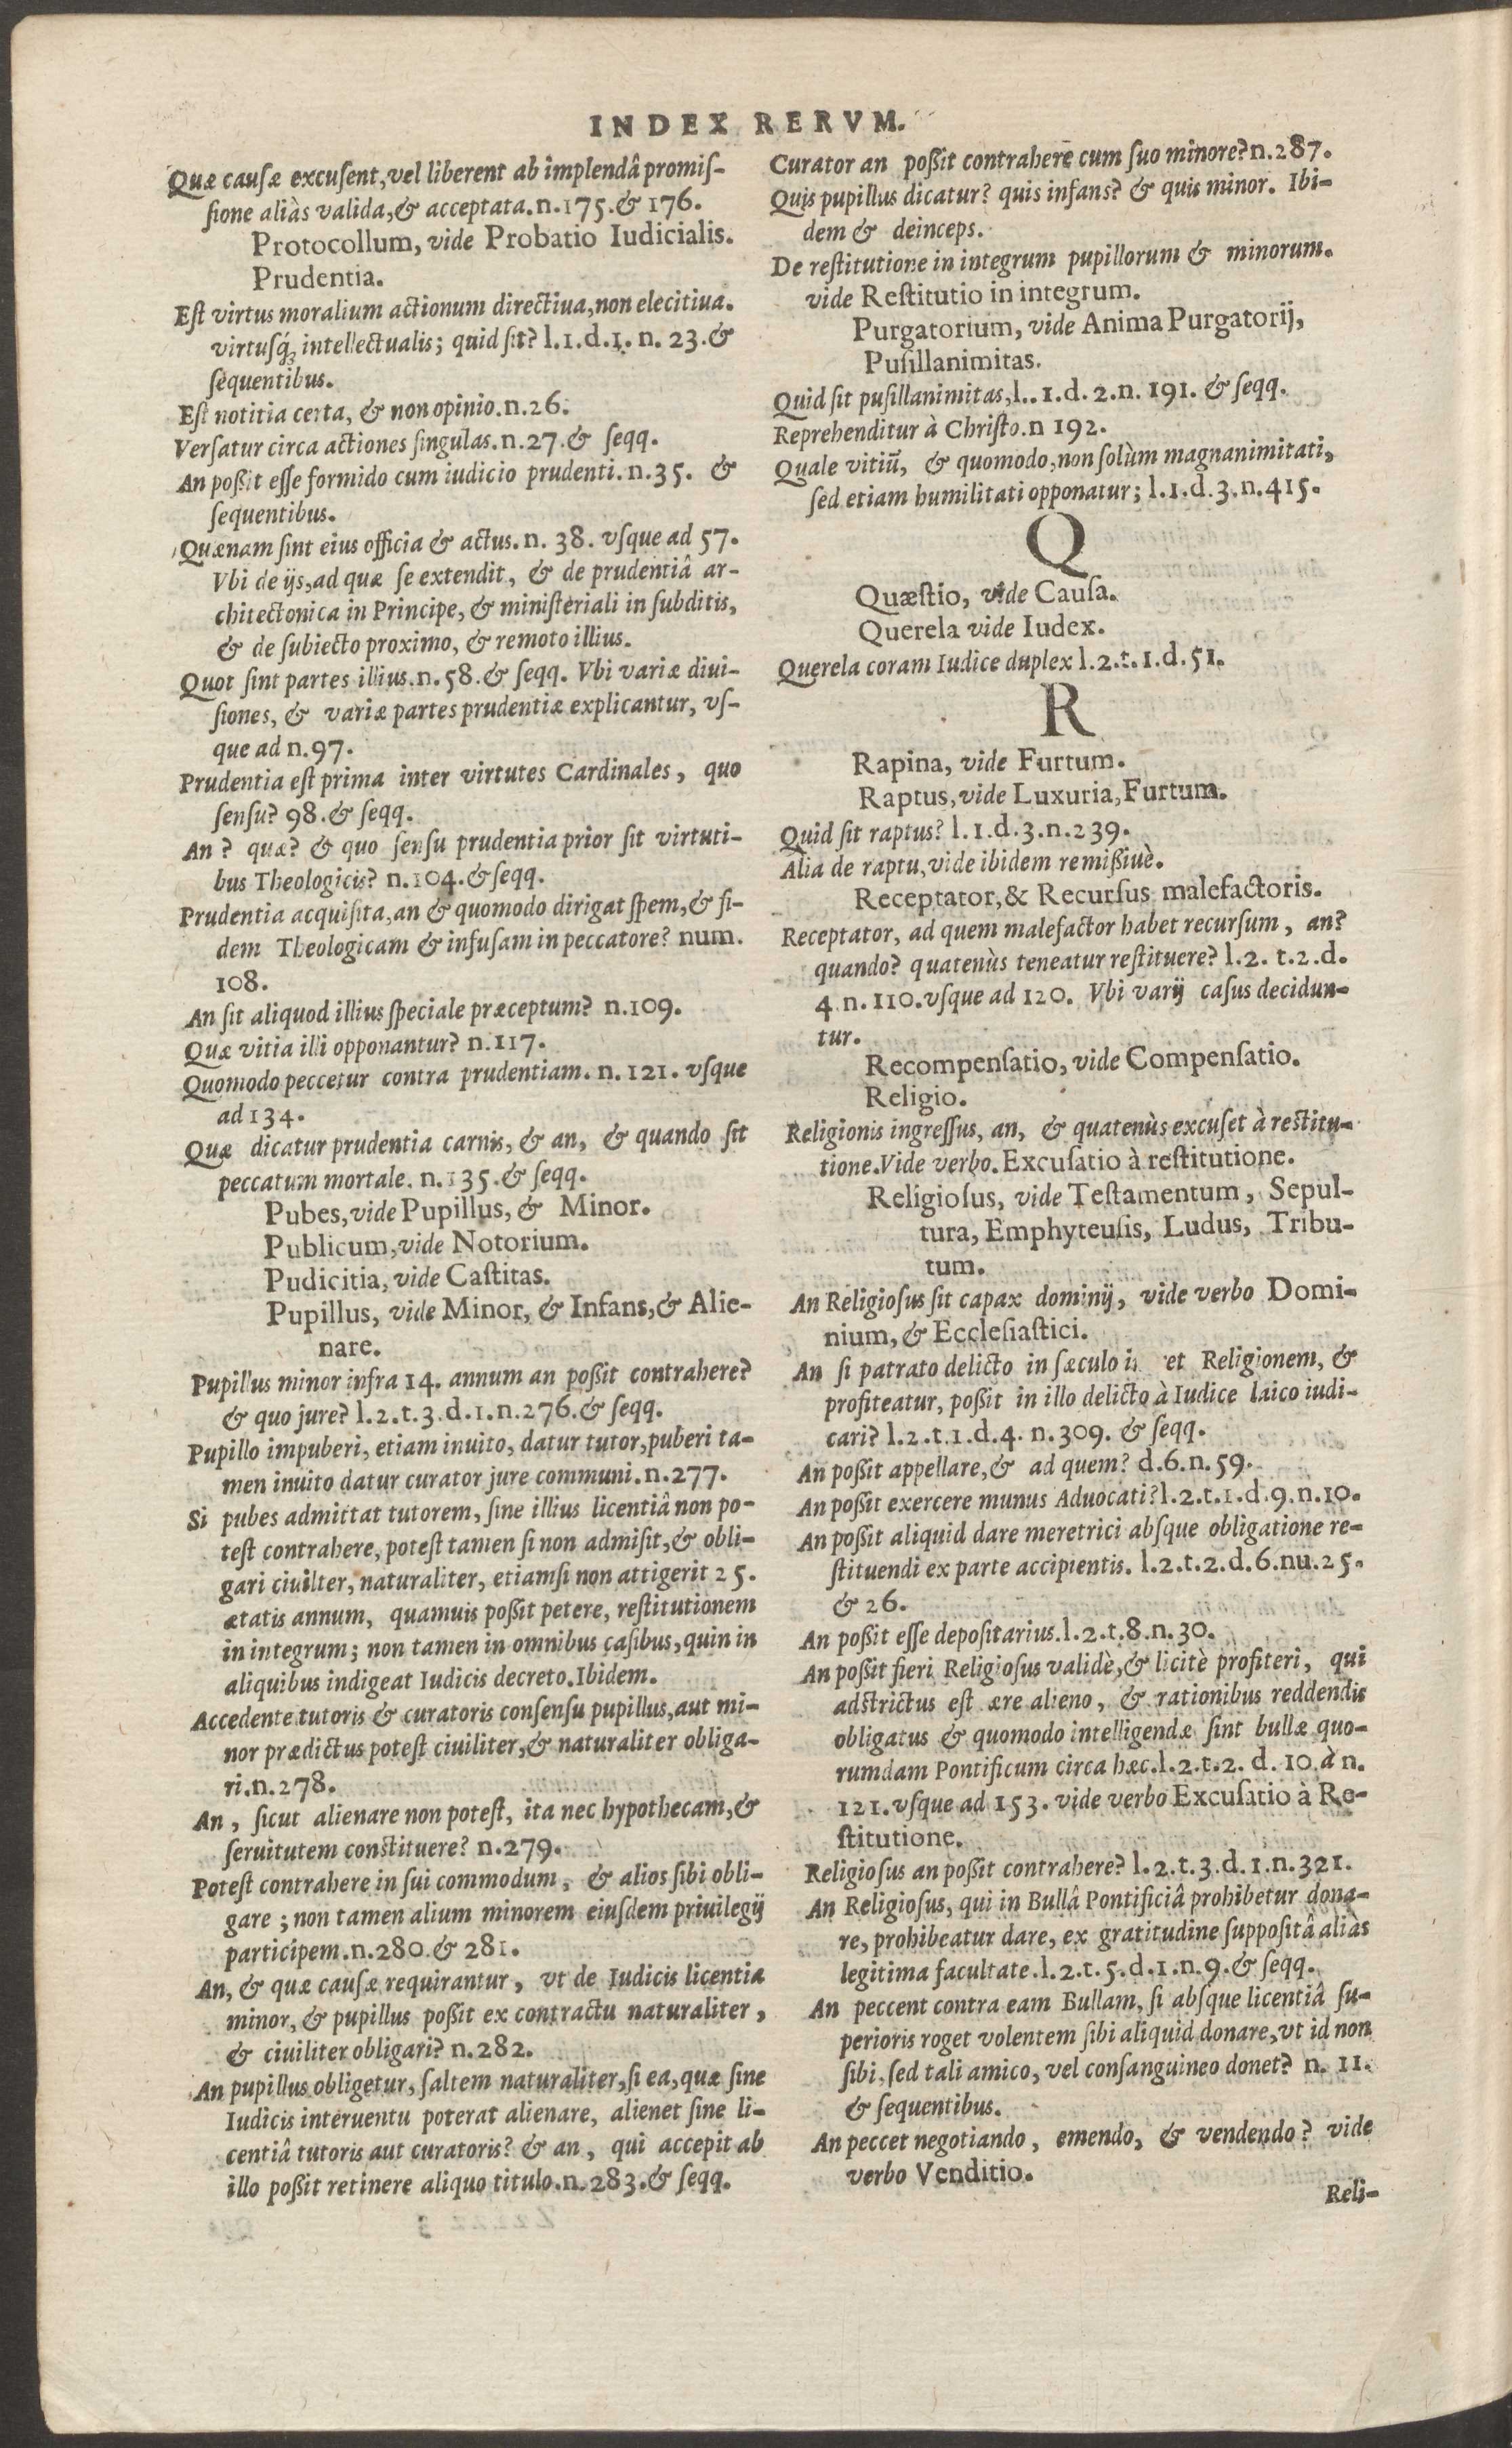 INDEX RERVM.
Quæ cauſæ excuſent, vel liberent ab implendâ promiſ-
ſione aliàs valida, & acceptata. n. 175. & 176.
Protocollum, vide Probatio Iudicialis.
Prudentia.
Eſt virtus moralium actionum directiua, non elecitiua.
virtuſq́; intellectualis; quid ſit? l. 1. d. 1. n. 23. &
ſequentibus.
Eſt notitia certa, & non opinio. n. 26.
Verſatur circa actiones ſingulas. n. 27. & ſeqq.
An poßit eſſe formido cum iudicio prudenti. n. 35. &
ſequentibus.
Quænam ſint eius officia & actus. n. 38. vſque ad 57.
Vbi de ijs, ad quæ ſe extendit, & de prudentiâ ar-
chitectonica in Principe, & miniſteriali in ſubditis,
& de ſubiecto proximo, & remoto illius.
Quot ſint partes illius. n. 58. & ſeqq. Vbi variæ diui-
ſiones, & variæ partes prudentiæ explicantur, vſ-
que ad n. 97.
Prudentia eſt prima inter virtutes Cardinales, quo
ſenſu? 98. & ſeqq.
An? quæ? & quo ſenſu prudentia prior ſit virtuti-
bus Theologicis? n. 104. & ſeqq.
Prudentia acquiſita, an & quomodo dirigat ſpem, & fi-
dem Theologicam & infuſam in peccatore? num.
108.
An ſit aliquod illius ſpeciale præceptum? n. 109.
Quæ vitia illi opponantur? n. 117.
Quomodo peccetur contra prudentiam. n. 121. vſque
ad 134.
Quæ dicatur prudentia carnis, & an, & quando ſit
peccatum mortale. n. 135. & ſeqq.
Pubes, vide Pupillus, & Minor.
Publicum, vide Notorium.
Pudicitia, vide Caſtitas.
Pupillus, vide Minor, & Infans, & Alie-
nare.
Pupillus minor infra 14. annum an poßit contrahere?
& quo jure? l. 2. t. 3. d. 1. n. 276. & ſeqq.
Pupillo impuberi, etiam inuito, datur tutor, puberi ta-
men inuito datur curator jure communi. n. 277.
Si pubes admittat tutorem, ſine illius licentiâ non po-
teſt contrahere, poteſt tamen ſi non admiſit, & obli-
gari ciuilter, naturaliter, etiamſi non attigerit 25.
ætatis annum, quamuis poßit petere, reſtitutionem
in integrum; non tamen in omnibus caſibus, quin in
aliquibus indigeat Iudicis decreto. Ibidem.
Accedente tutoris & curatoris conſenſu pupillus, aut mi-
nor prædictus poteſt ciuiliter, & naturaliter obliga-
ri. n. 278.
An, ſicut alienare non poteſt, ita nec hypothecam, &
ſeruitutem conſtituere? n. 279.
Poteſt contrahere in ſui commodum, & alios ſibi obli-
gare; non tamen alium minorem eiuſdem priuilegij
participem. n. 280. & 281.
An, & quæ cauſæ requirantur, vt de Iudicis licentia
minor, & pupillus poßit ex contractu naturaliter,
& ciuiliter obligari? n. 282.
An pupillus obligetur, ſaltem naturaliter, ſi ea, quæ ſine
Iudicis interuentu poterat alienare, alienet ſine li-
centiâ tutoris aut curatoris? & an, qui accepit ab
illo poßit retinere aliquo titulo. n. 283. & ſeqq.
Curator an poßit contrahere cum ſuo minore? n. 287.
Quis pupillus dicatur? quis infans? & quis minor. Ibi-
dem & deinceps.
De reſtitutione in integrum pupillorum & minorum.
vide Reſtitutio in integrum.
Purgatorium, vide Anima Purgatorij,
Puſillanimitas.
Quid ſit puſillanimitas, l.. 1. d. 2. n. 191. & ſeqq.
Reprehenditur à Chriſto. n 192.
Quale vitiũ, & quomodo, non ſolùm magnanimitati,
ſed etiam humilitati opponatur; l. 1. d. 3. n. 415.
Q
Quæſtio, vide Cauſa.
Querela vide Iudex.
Querela coram Iudice duplex l. 2. t. 1. d. 51.
R
Rapina, vide Furtum.
Raptus, vide Luxuria, Furtum.
Quid ſit raptus? l. 1. d. 3. n. 239.
Alia de raptu, vide ibidem remißiuè.
Receptator, & Recurſus malefactoris.
Receptator, ad quem malefactor habet recurſum, an?
quando? quatenùs teneatur reſtituere? l. 2. t. 2. d.
4. n. 110. vſque ad 120. Vbi varij caſus decidun-
tur.
Recompenſatio, vide Compenſatio.
Religio.
Religionis ingreſſus, an, & quatenùs excuſet à reſtitu-
tione. Vide verbo. Excuſatio à reſtitutione.
Religioſus, vide Teſtamentum, Sepul-
tura, Emphyteuſis, Ludus, Tribu-
tum.
An Religioſus ſit capax dominij, vide verbo Domi-
nium, & Eccleſiaſtici.
An ſi patrato delicto in ſæculo et Religionem, &
profiteatur, poßit in illo delicto à Iudice laico iudi-
cari? l. 2. t. 1. d. 4. n. 309. & ſeqq.
An poßit appellare, & ad quem? d. 6. n. 59.
An poßit exercere munus Aduocati? l. 2. t. 1. d. 9. n. 10.
An poßit aliquid dare meretrici abſque obligatione re-
ſtituendi ex parte accipientis. l. 2. t. 2. d. 6. nu. 25.
& 26.
An poßit eſſe depoſitarius. l. 2. t. 8. n. 30.
An poßit fieri Religioſus validè, & licitè profiteri, qui
adſtrictus eſt ære alieno, & rationibus reddendis
obligatus & quomodo intelligendæ ſint bullæ quo-
rumdam Pontificum circa hæc. l. 2. t. 2. d. 10. à n.
121. vſque ad 153. vide verbo Excuſatio à Re-
ſtitutione.
Religioſus an poßit contrahere? l. 2. t. 3. d. 1. n. 321.
An Religioſus, qui in Bullâ Pontificiâ prohibetur dona-
re, prohibeatur dare, ex gratitudine ſuppoſitâ aliàs
legitima facultate. l. 2. t. 5. d. 1. n. 9. & ſeqq.
An peccent contra eam Bullam, ſi abſque licentiâ ſu-
perioris roget volentem ſibi aliquid donare, vt id non
ſibi, ſed tali amico, vel conſanguineo donet? n. 11.
& ſequentibus.
An peccet negotiando, emendo, & vendendo? vide
verbo Venditio.
Reli-